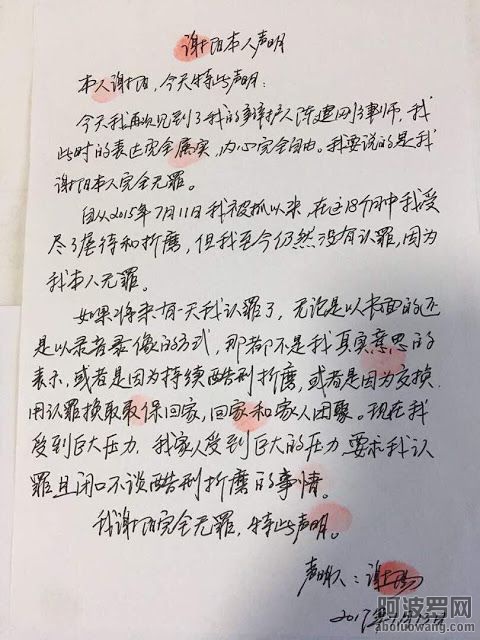 谢阳本人声明
本人谢阳，今天特此声明：
今天我再次见到了我的辩护人陈建刚律师，我
此时的表达完全属实，内心完全自由。我要说的是我
谢阳本人完全无罪。
自从2015年7月11日我被抓以来，在这18个月中我受
尽了虐待和折磨，但我至今仍然没有认罪，因为
我本人无罪。
如果将来有一天我认罪了，无论是以书面的还
是以录音录像的方式，那都不是我真实意思的
表示，或者是因为持续酷刑折磨，或者是因为交换
用认罪换取取保回家，回家和家人团聚。现在我
受到巨大压力，我家人受到巨大的压力，要求我认
罪且闭口不谈酷刑折磨的事情。
我谢阳完全无罪，特此声明。
声明人：谢阳
2017年1月13日
阿波罗网
aboluowang.com